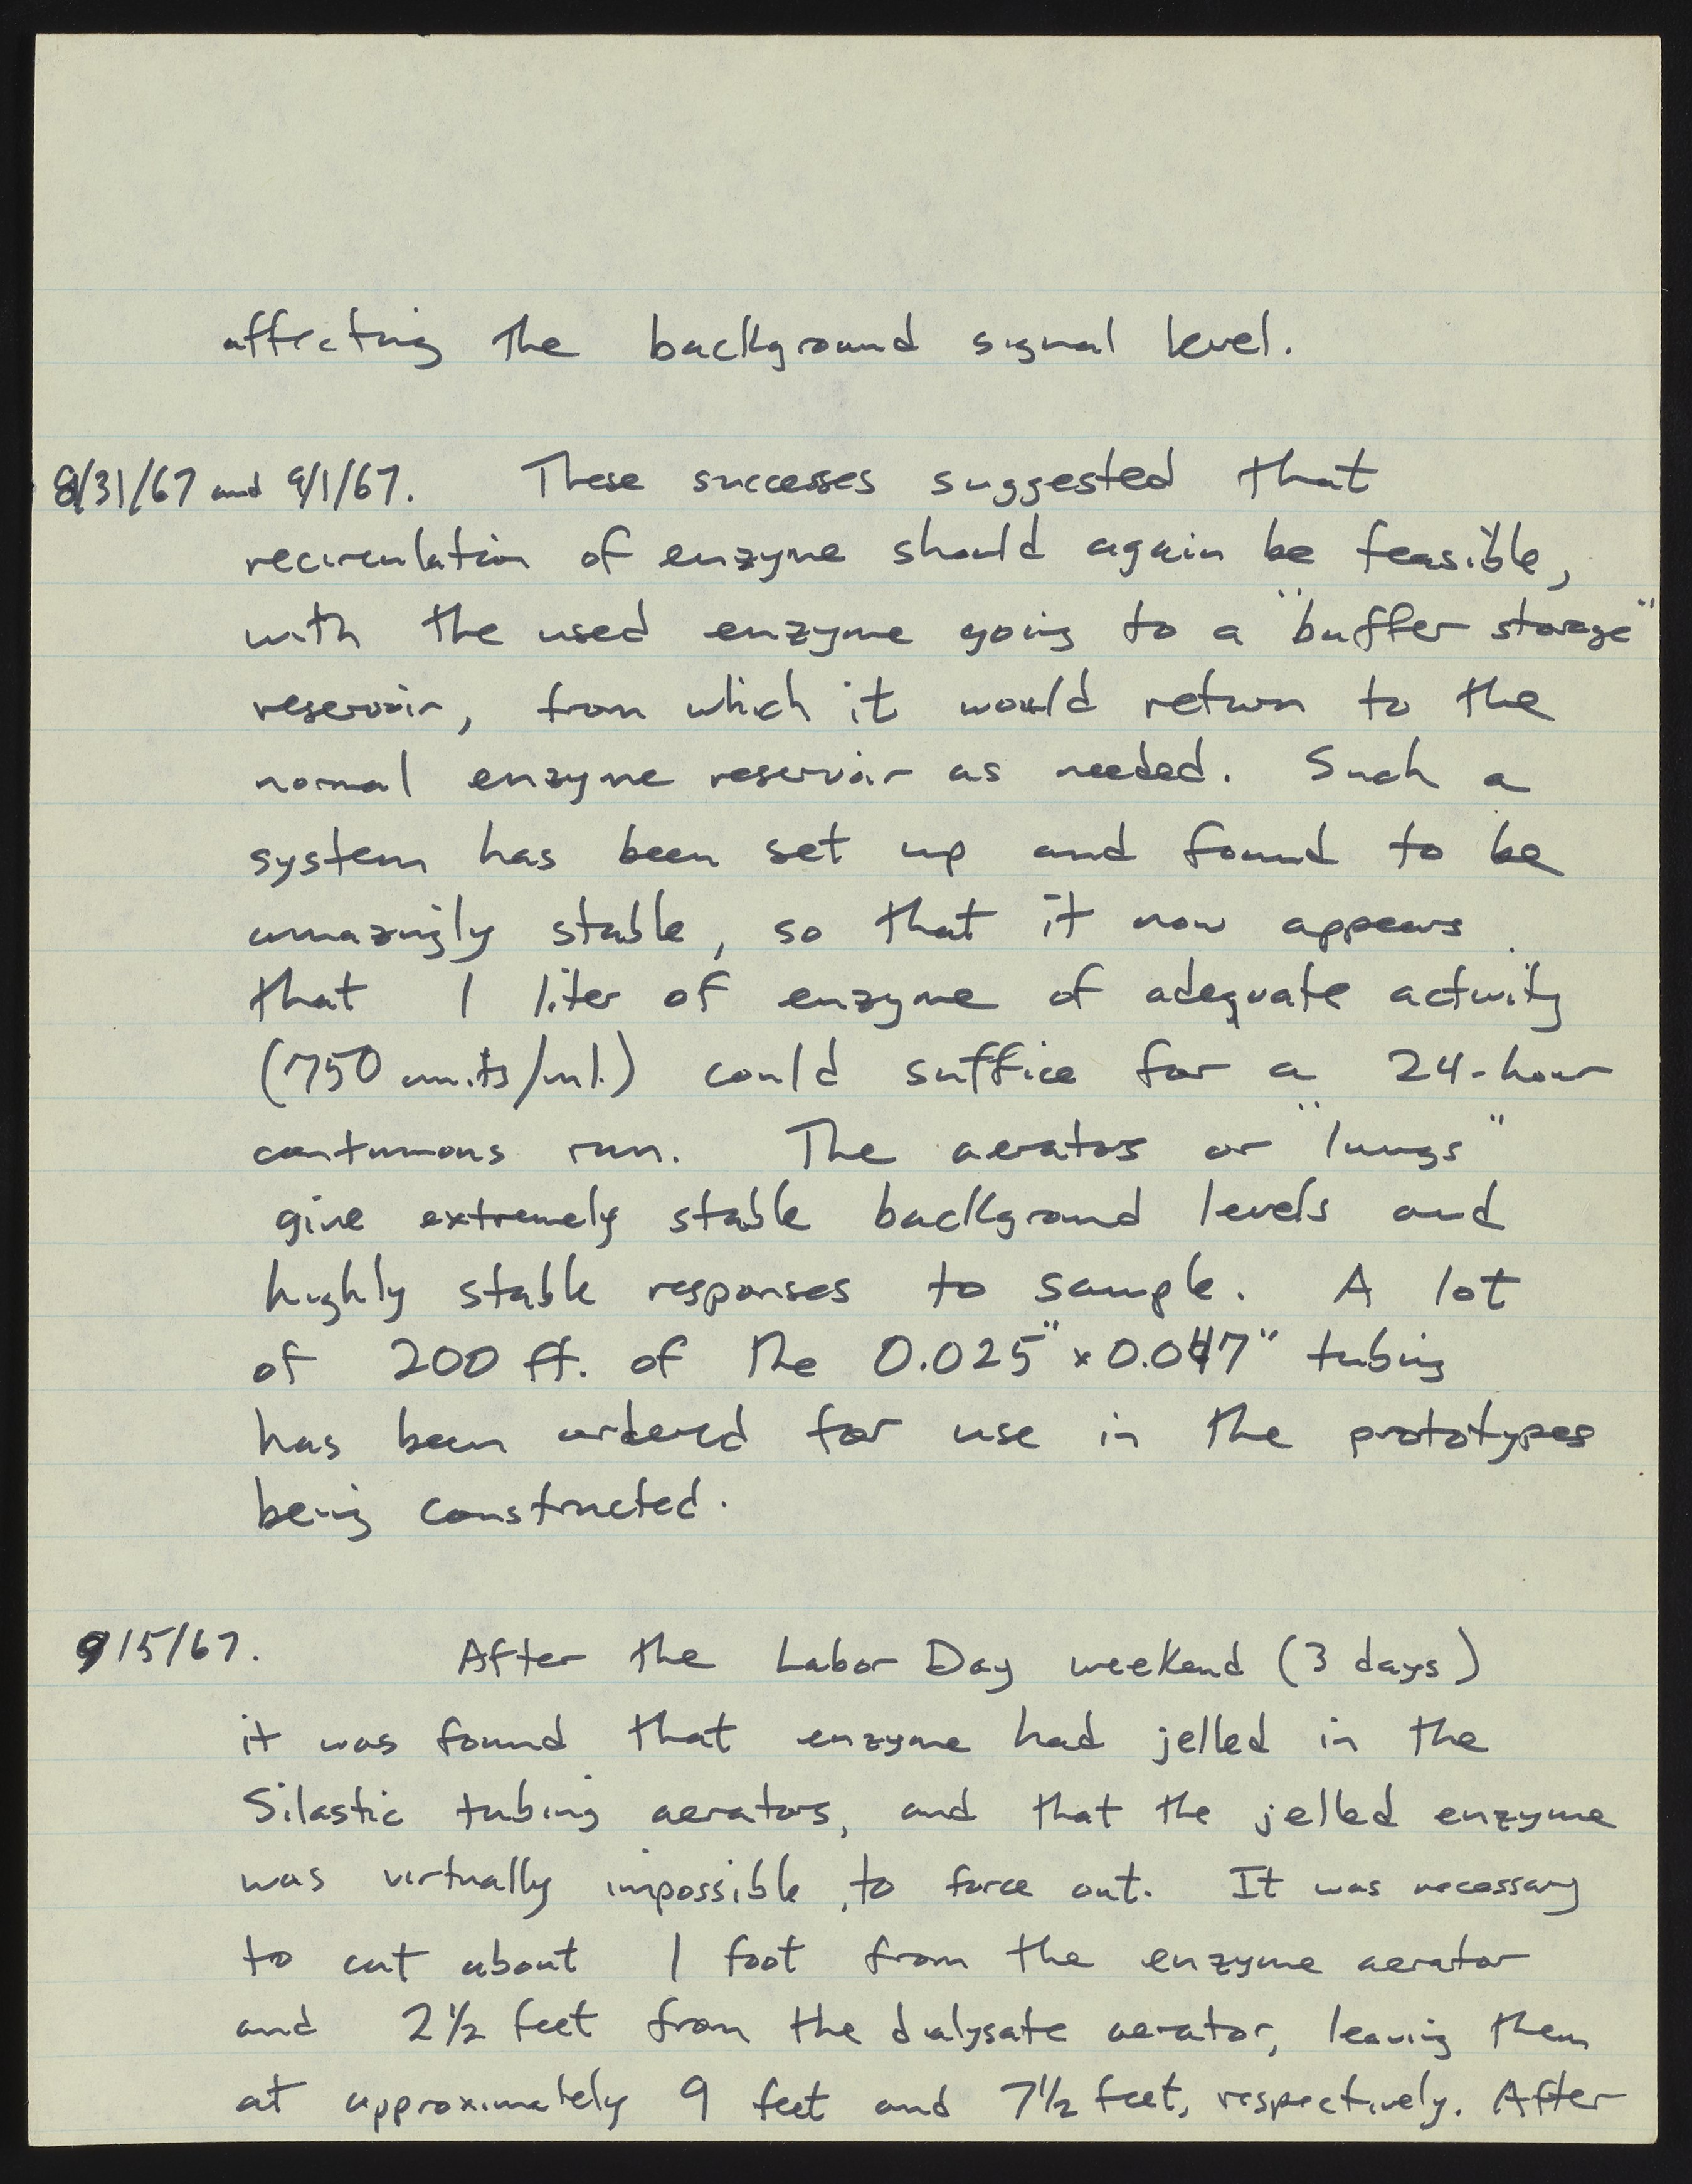 affecting the background signal level.
8/31/67 and 9/1/67. These successes suggested that
recirculation of enzyme should again be feasible,
with the used enzyme going to a "buffer storage"
reservoir, from which it would return to the
normal enzyme reservoir as needed. Such a
system has been set up and found to be
amazingly stable, so that it now appears
that 1 liter of enzyme of adequate activity
(750 units/ml.) could suffice for a 24-hour
continuous run. The aerators or "lungs"
give extremely stable background levels and
highly stable responses to sample. A lot
of 200 ft. of the 0.025" x 0.047" tubing
has been ordered for use in the prototypes
being constructed.
9/5/67. After the Labor Day weekend (3 days)
it was found that enzyme had jelled in the
Silastic tubing aerators, and that the jelled enzyme
was virtually impossible to force out. It was necessary
to cut about 1 foot from the enzyme aerator
and 2½ feet from the dialysate aerator, leaving them
at approximately 9 feet and 7½ feet, respectively. After